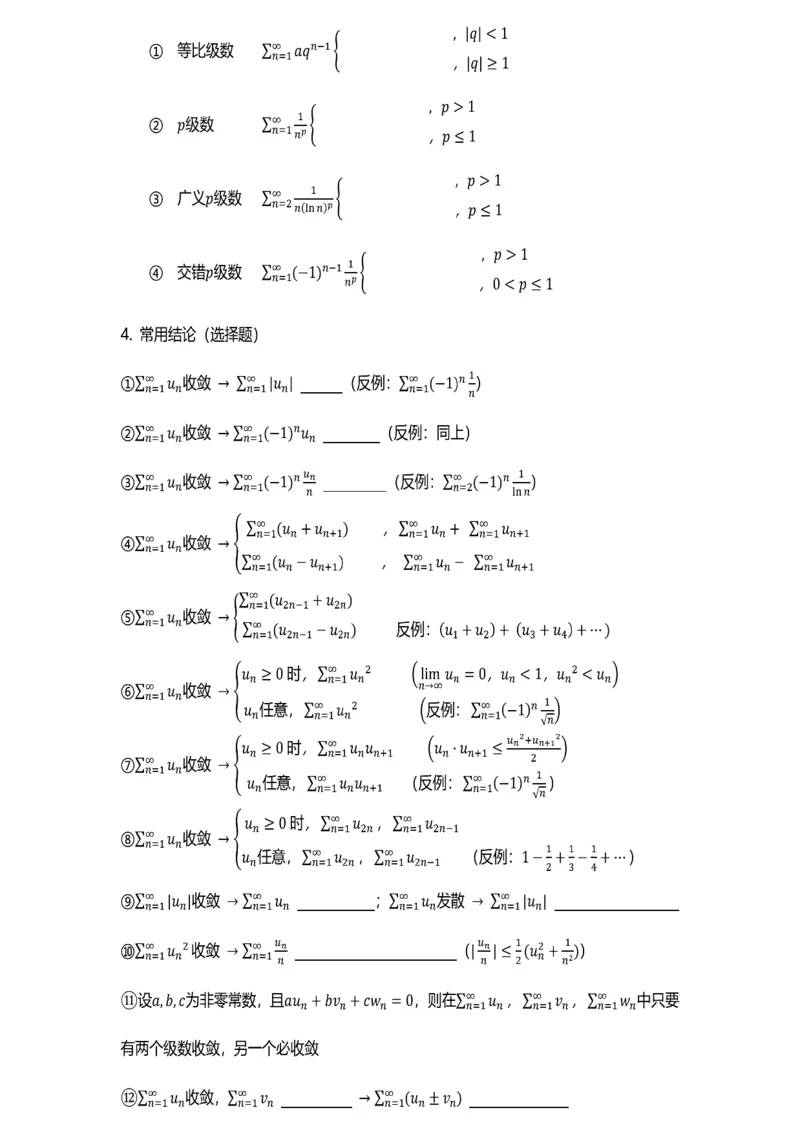 ① 等比级数 $\sum_{n=1}^{\infty} aq^{n-1} \begin{cases} \quad , |q| < 1 \\ \quad , |q| \geq 1 \end{cases}$
② $p$级数 $\sum_{n=1}^{\infty} \frac{1}{n^p} \begin{cases} \quad , p > 1 \\ \quad , p \leq 1 \end{cases}$
③ 广义$p$级数 $\sum_{n=2}^{\infty} \frac{1}{n(\ln n)^p} \begin{cases} \quad , p > 1 \\ \quad , p \leq 1 \end{cases}$
④ 交错$p$级数 $\sum_{n=1}^{\infty} (-1)^{n-1} \frac{1}{n^p} \begin{cases} \quad , p > 1 \\ \quad , 0 < p \leq 1 \end{cases}$
4. 常用结论（选择题）
①$\sum_{n=1}^{\infty} u_n$收敛 → $\sum_{n=1}^{\infty} |u_n|$ _____ （反例：$\sum_{n=1}^{\infty} (-1)^n \frac{1}{n}$）
②$\sum_{n=1}^{\infty} u_n$收敛 → $\sum_{n=1}^{\infty} (-1)^n u_n$ _______ （反例：同上）
③$\sum_{n=1}^{\infty} u_n$收敛 → $\sum_{n=1}^{\infty} (-1)^n \frac{u_n}{n}$ ________ （反例：$\sum_{n=2}^{\infty} (-1)^n \frac{1}{\ln n}$）
④$\sum_{n=1}^{\infty} u_n$收敛 → $\begin{cases} \sum_{n=1}^{\infty} (u_n + u_{n+1}) \quad , \sum_{n=1}^{\infty} u_n + \sum_{n=1}^{\infty} u_{n+1} \\ \sum_{n=1}^{\infty} (u_n - u_{n+1}) \quad , \sum_{n=1}^{\infty} u_n - \sum_{n=1}^{\infty} u_{n+1} \end{cases}$
⑤$\sum_{n=1}^{\infty} u_n$收敛 → $\begin{cases} \sum_{n=1}^{\infty} (u_{2n-1} + u_{2n}) \\ \sum_{n=1}^{\infty} (u_{2n-1} - u_{2n}) \quad 反例：(u_1 + u_2) + (u_3 + u_4) + \cdots) \end{cases}$
⑥$\sum_{n=1}^{\infty} u_n$收敛 → $\begin{cases} u_n \geq 0 时，\sum_{n=1}^{\infty} {u_n}^2 \quad \left(\lim_{n \to \infty} u_n = 0，u_n < 1，{u_n}^2 < u_n\right) \\ u_n任意，\sum_{n=1}^{\infty} {u_n}^2 \quad \left(反例：\sum_{n=1}^{\infty} (-1)^n \frac{1}{\sqrt{n}}\right) \end{cases}$
⑦$\sum_{n=1}^{\infty} u_n$收敛 → $\begin{cases} u_n \geq 0 时，\sum_{n=1}^{\infty} u_n u_{n+1} \quad \left(u_n \cdot u_{n+1} \leq \frac{{u_n}^2 + {u_{n+1}}^2}{2}\right) \\ u_n任意，\sum_{n=1}^{\infty} u_n u_{n+1} \quad （反例：\sum_{n=1}^{\infty} (-1)^n \frac{1}{\sqrt{n}}） \end{cases}$
⑧$\sum_{n=1}^{\infty} u_n$收敛 → $\begin{cases} u_n \geq 0 时，\sum_{n=1}^{\infty} u_{2n}，\sum_{n=1}^{\infty} u_{2n-1} \\ u_n任意，\sum_{n=1}^{\infty} u_{2n}，\sum_{n=1}^{\infty} u_{2n-1} \quad （反例：1 - \frac{1}{2} + \frac{1}{3} - \frac{1}{4} + \cdots） \end{cases}$
⑨$\sum_{n=1}^{\infty} |u_n|$收敛 → $\sum_{n=1}^{\infty} u_n$ _________；$\sum_{n=1}^{\infty} u_n$发散 → $\sum_{n=1}^{\infty} |u_n|$ _______________
⑩$\sum_{n=1}^{\infty} {u_n}^2$ 收敛 → $\sum_{n=1}^{\infty} \frac{u_n}{n}$ ____________________ ($|\frac{u_n}{n}| \leq \frac{1}{2}(u_n^2 + \frac{1}{n^2})$)
⑪设$a, b, c$为非零常数，且$au_n + bv_n + cw_n = 0$，则在$\sum_{n=1}^{\infty} u_n$，$\sum_{n=1}^{\infty} v_n$，$\sum_{n=1}^{\infty} w_n$中只要
有两个级数收敛，另一个必收敛
⑫$\sum_{n=1}^{\infty} u_n$收敛，$\sum_{n=1}^{\infty} v_n$ _________ → $\sum_{n=1}^{\infty} (u_n \pm v_n)$ ____________